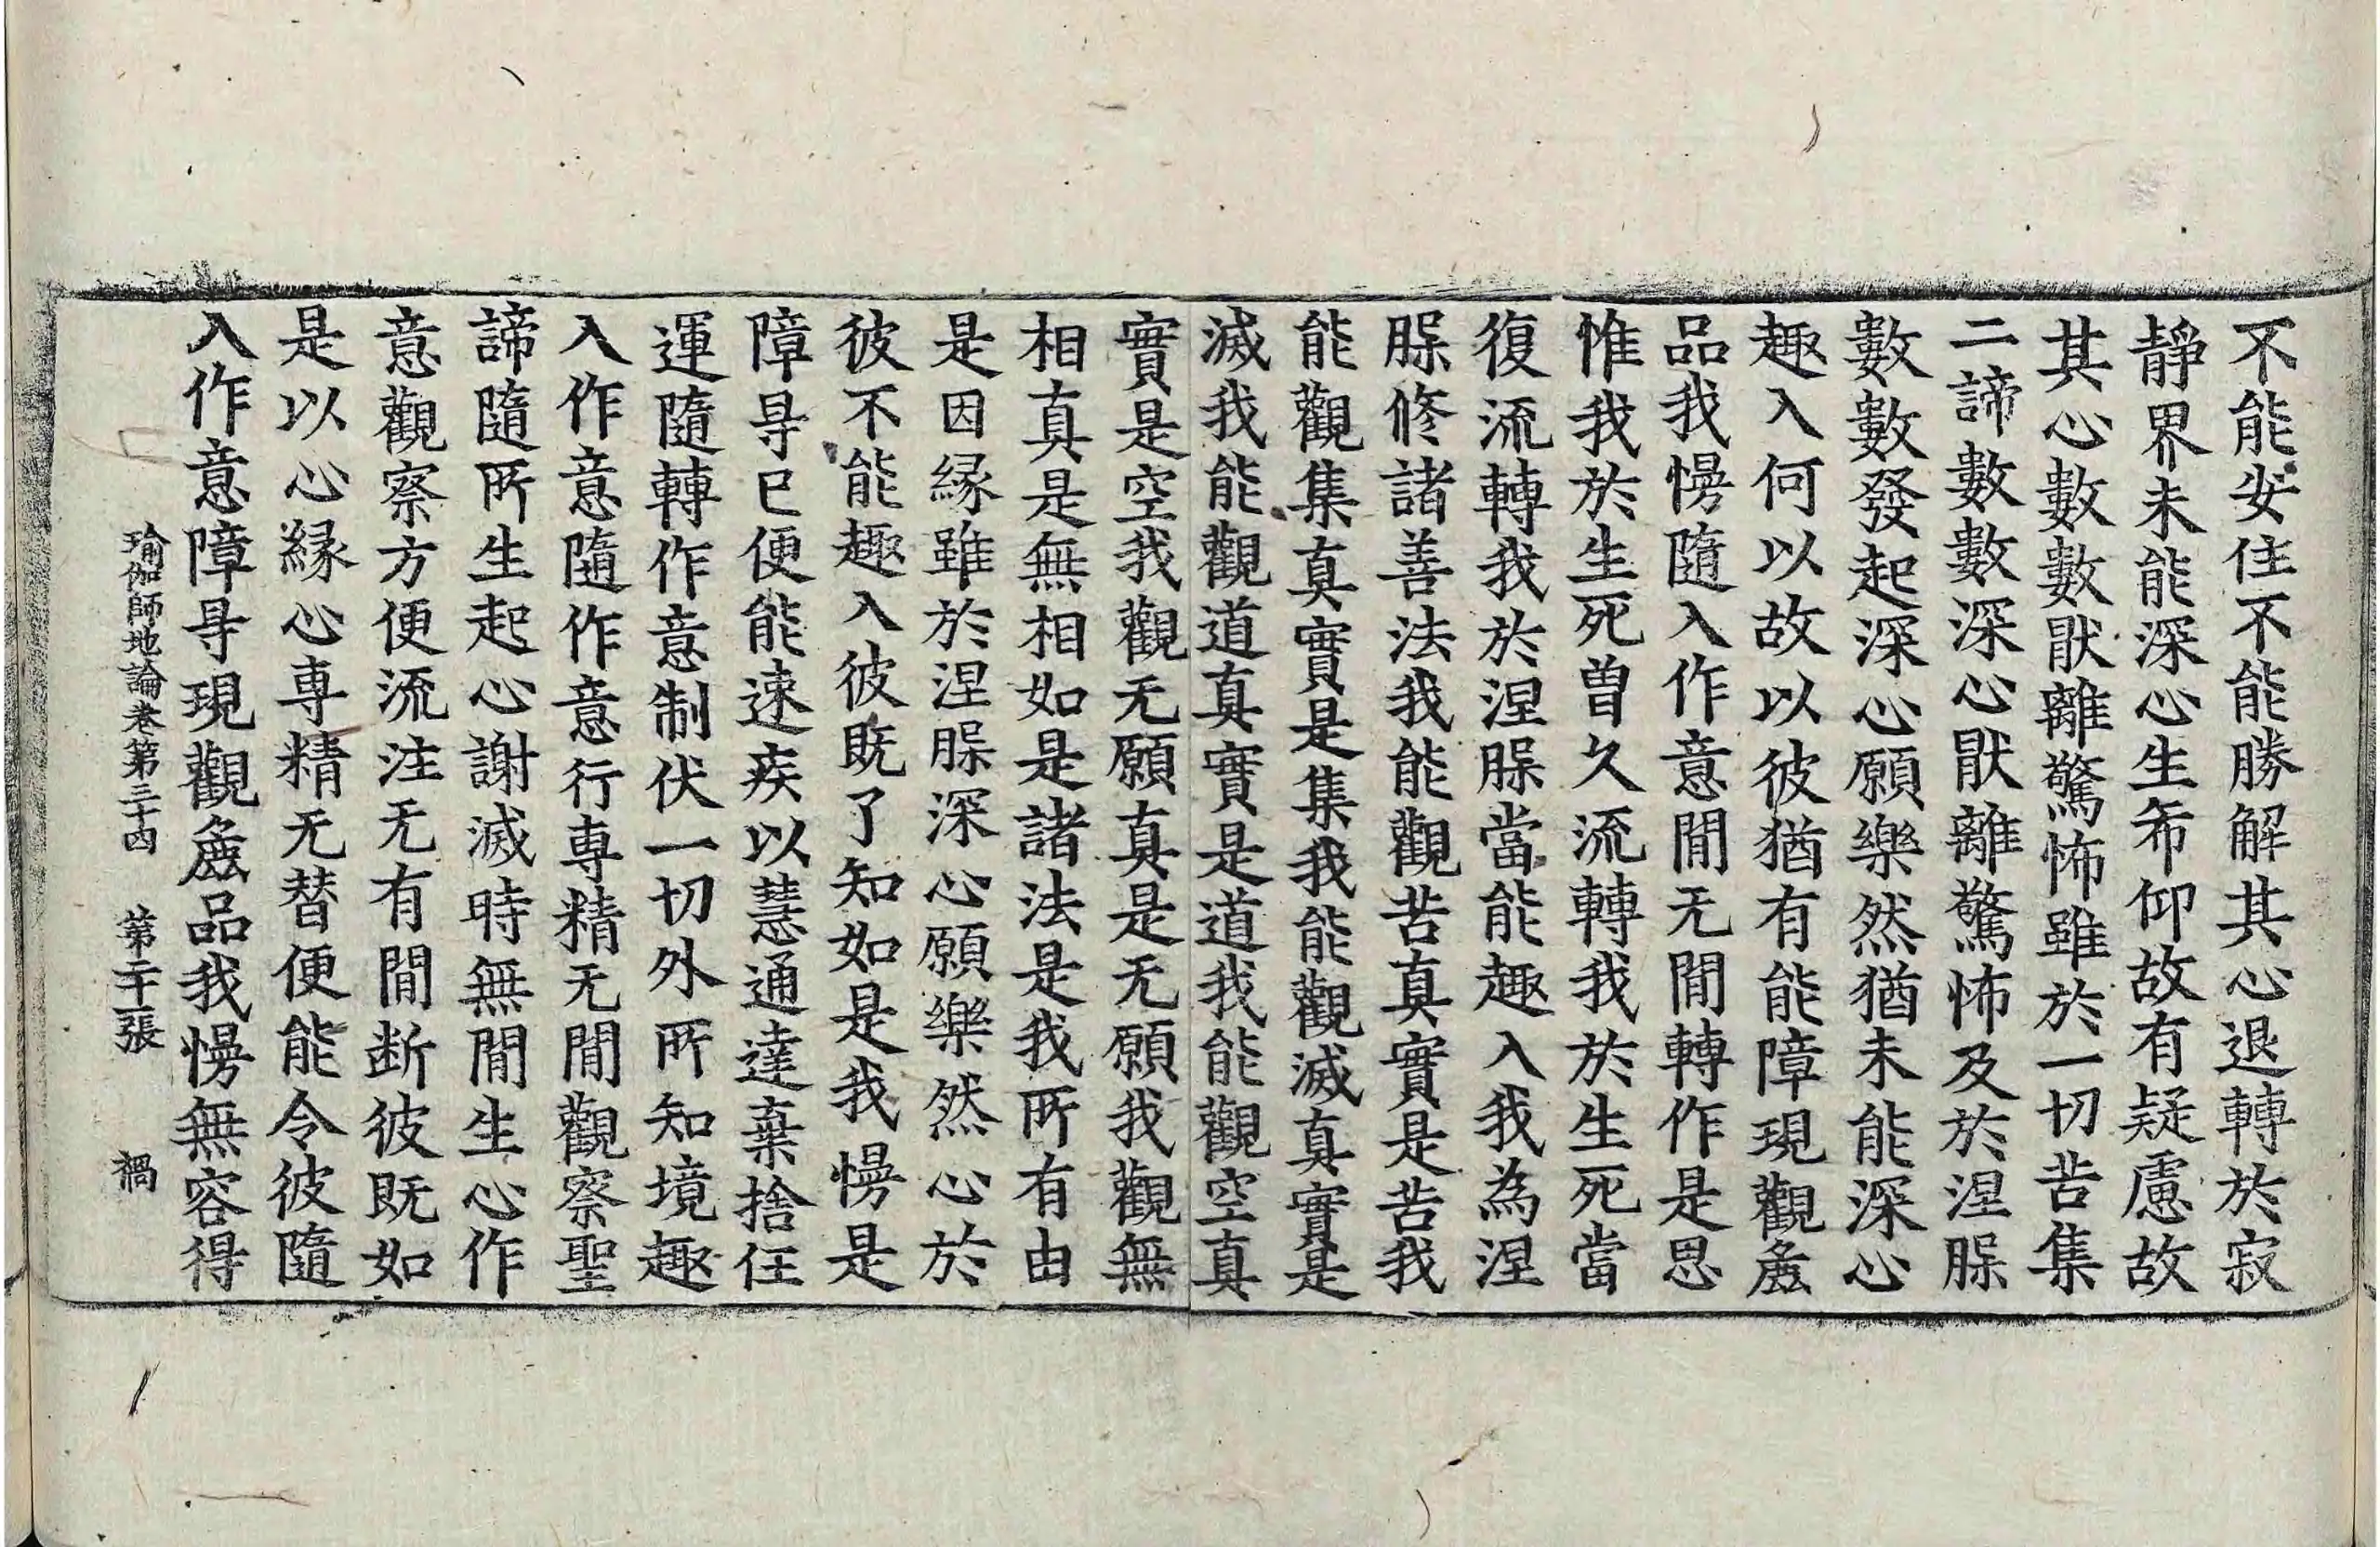 不能安住不能勝解其心退轉於寂
靜界未能深心生希仰故有疑慮故
其心數數猒離驚怖雖於一切苦集
二諦數數深心猒離驚怖及於涅槃
數數發起深心願樂然猶未能深心
趣入何以故以彼猶有能障現觀麁
品我慢隨入作意閒无閒轉作是思
惟我於生死曽久流轉我於生死當
復流轉我於涅槃當能趣入我為涅
槃修諸善法我能觀苦真實是苦我
能觀集真實是集我能觀滅真實是
滅我能觀道真實是道我能觀空真
實是空我觀无願真是无願我觀無
相真是無相如是諸法是我所有由
是因縁雖於涅槃深心願樂然心於
彼不能趣入彼既了知如是我慢是
障㝵已便能速疾以慧通達棄捨任
運隨轉作意制伏一切外所知境趣
入作意隨作意行専精无閒觀察聖
諦隨所生起心謝滅時無閒生心作
意觀察方便流注无有閒断彼既如
是以心縁心専精无替便能令彼隨
入作意障㝵現觀麁品我慢無容得
瑜伽師地論卷第三十四 第二十一張 禍